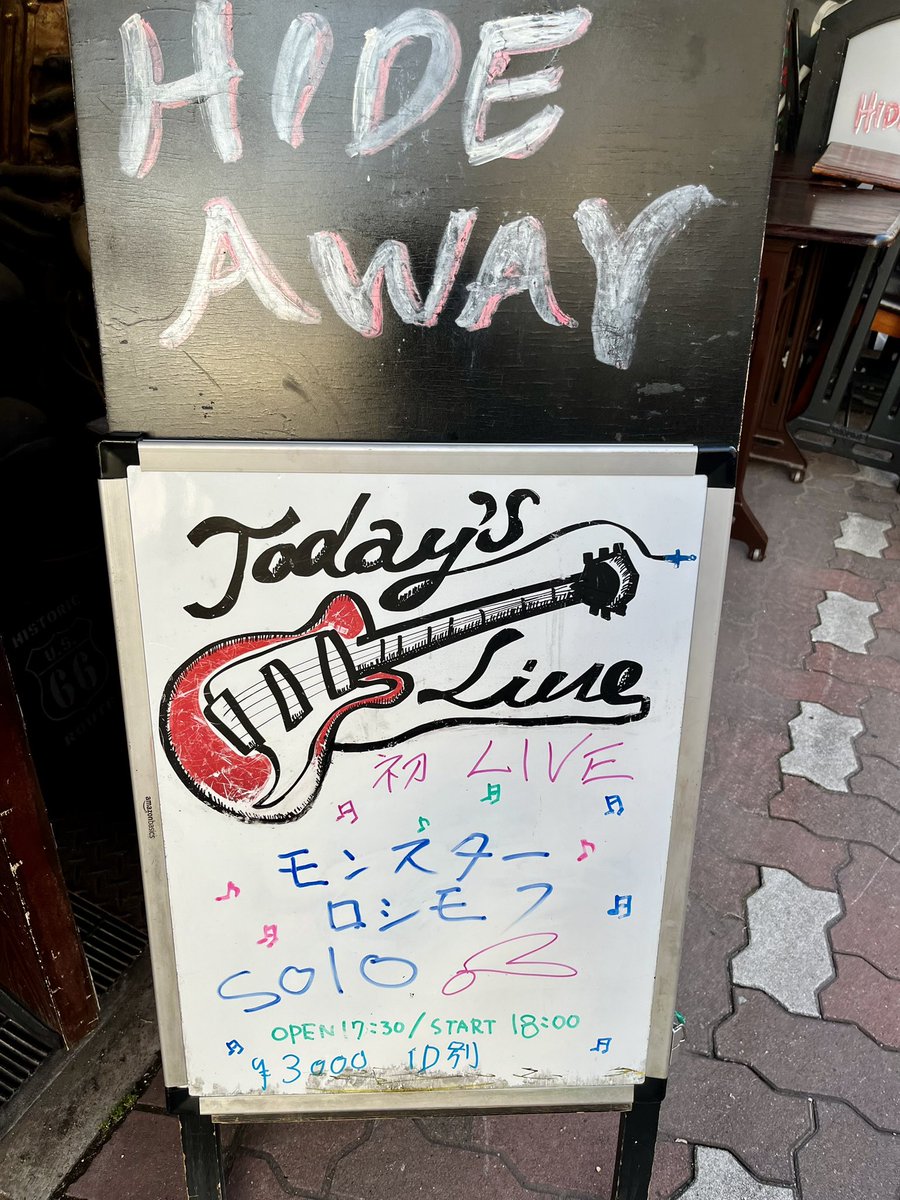 HIDE
AWAY
HIDE
Today's
Live
HISTORIC
U.S.
66
初 LIVE
amazonbasics
モンスター
ロシモフ
solo
OPEN 17:30/START 18:00
¥3000 1D別